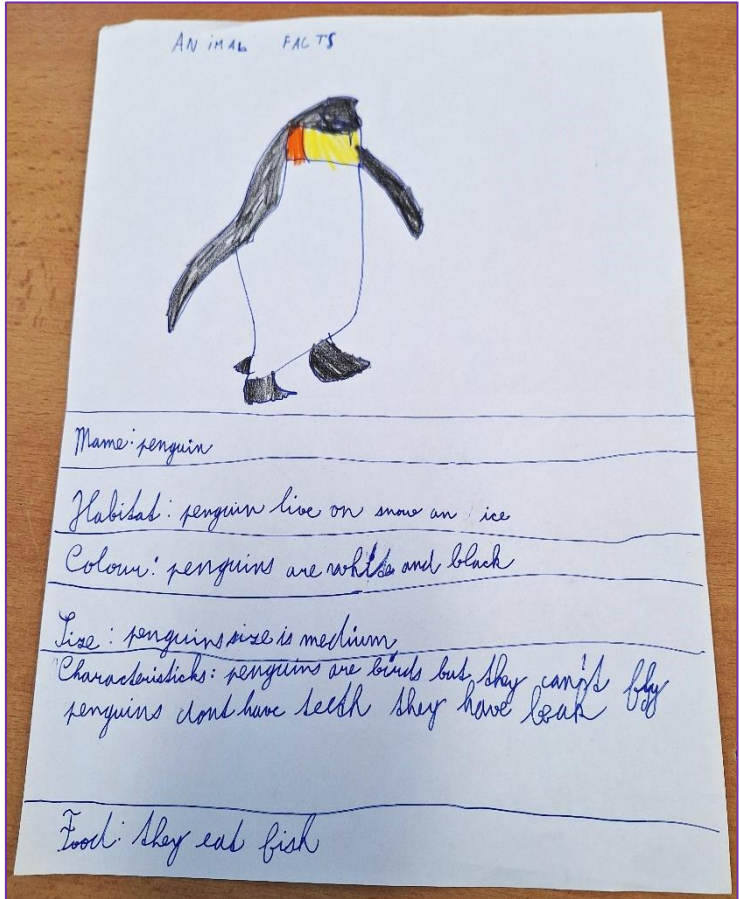 ANIMAL FACTS
Name: penguin
Habitat: penguin live on snow an ice
Colour: penguins are white and black
Size: penguins size is medium
Characteristicks: penguins are birds but they can't fly
penguins dont have teeth they have beak
Food: they eat fish